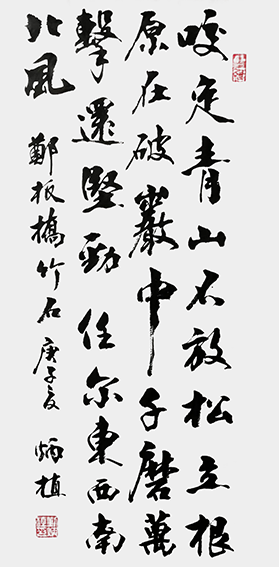 咬定青山不放松立根
原在破巖中千磨萬
擊還堅勁任尔東西南
北風
鄭板橋竹石 庚子夏 炳植